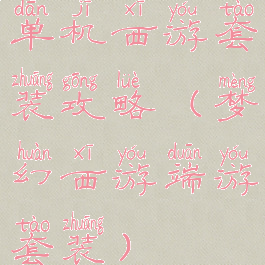 dān jī xī yóu tào
单机西游套
zhuāng gōng luè mèng
装攻略（梦
huàn xī yóu duān yóu
幻西游端游
tào zhuāng
套装）